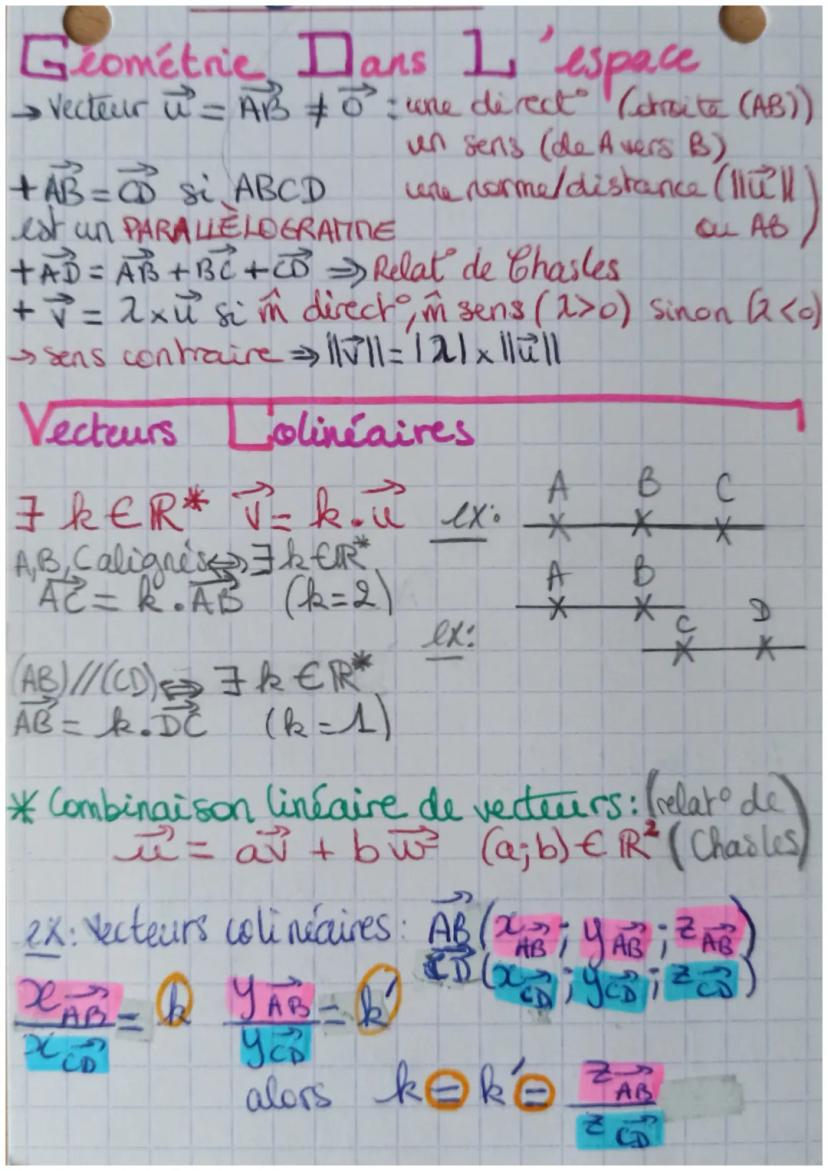 Géométrie Dans L'espace
→ Vecteur u⃗ = AB⃗ ≠ 0⃗ : une direct° (droite (AB))
un sens (de A vers B)
+ AB⃗ = CD⃗ si ABCD une norme/distance (||u⃗||
est un PARALLÈLOGRAMME ou AB)
+ AD⃗ = AB⃗ + BC⃗ + CD⃗ ⇒ Relat° de Chasles
+ v⃗ = λ × u⃗ si m̂ direct°, m̂ sens (λ>0) sinon (λ<0)
→ sens contraire ⇒ ||v⃗|| = |λ| × ||u⃗||
Vecteurs Colinéaires
∃ k ∈ ℝ* v⃗ = k . u⃗ ex: A B C
A, B, C alignés ⇔ ∃ k ∈ ℝ*
AC⃗ = k . AB⃗ (k = 2) A B
ex: C D
(AB) // (CD) ⇔ ∃ k ∈ ℝ*
AB⃗ = k . DC⃗ (k = 1)
* Combinaison linéaire de vecteurs : (relat° de
u⃗ = av⃗ + bw⃗ (a ; b) ∈ ℝ² (Chasles)
ex : Vecteurs colinéaires : AB⃗ (x AB⃗ ; y AB⃗ ; z AB⃗)
CD⃗ (x CD⃗ ; y CD⃗ ; z CD⃗)
x AB⃗ / x CD⃗ = k y AB⃗ / y CD⃗ = k'
alors k = k' = z AB⃗ / z CD⃗